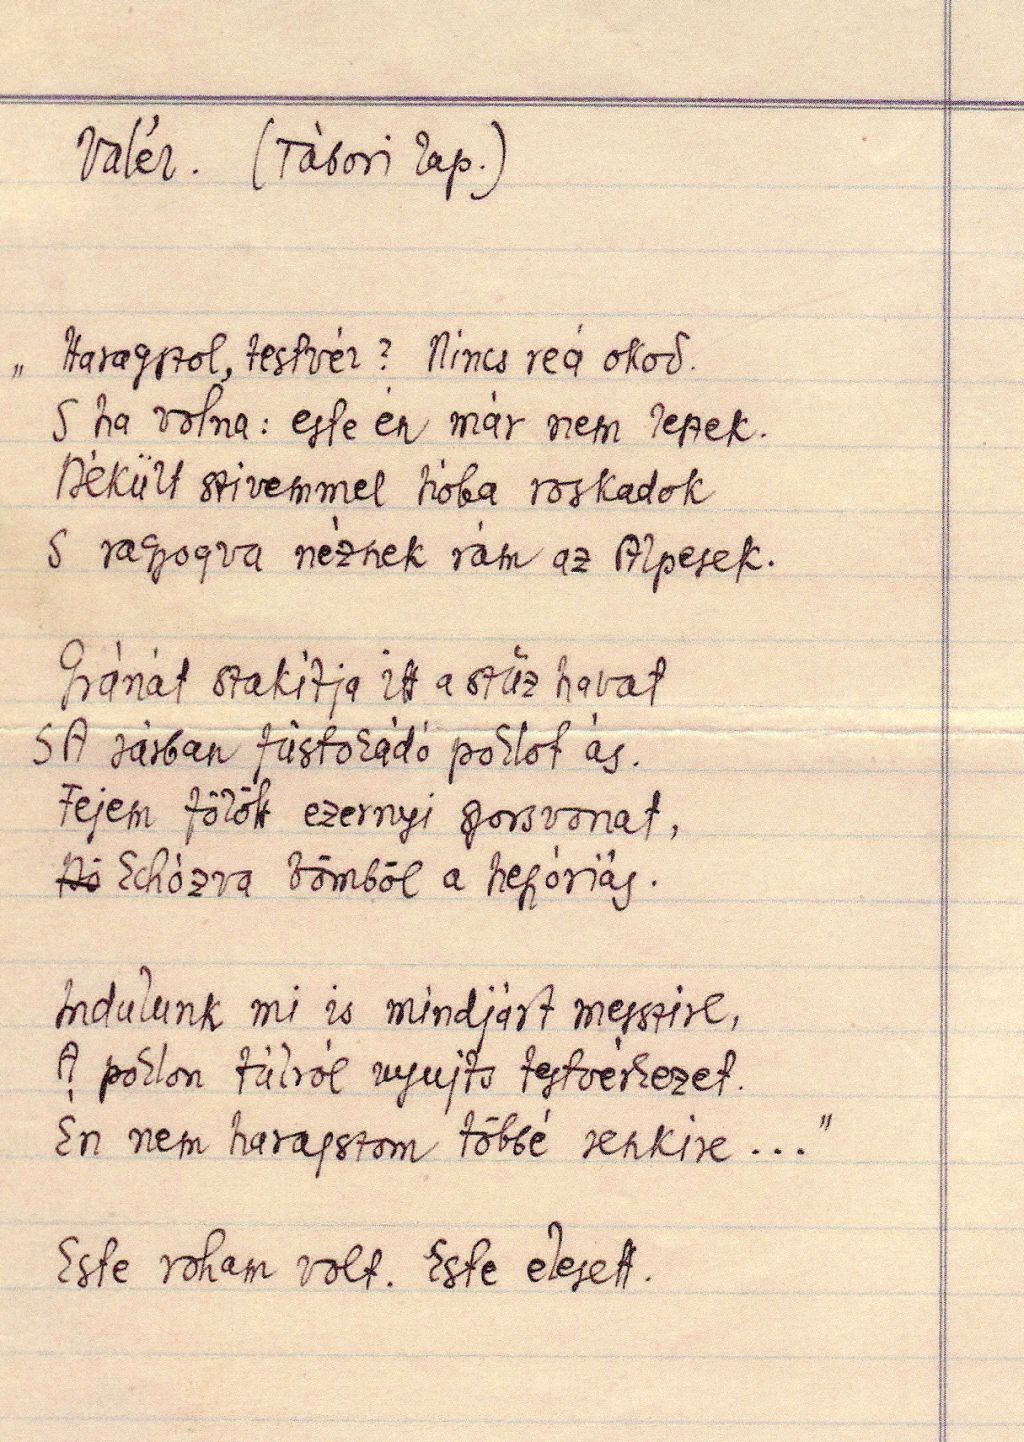 Valér. (Tábori lap.)
„Haragszol, testvér? Nincs reá okod.
S ha volna: este én már nem leszek.
Békült szivemmel hóba roskadok
S ragyogva néznek rám az Alpesek.
Gránát szakítja itt a szűz havat
S A sárban füstokádó poklot ás.
Fejem fölött ezernyi gyorsvonat,
Echózva bömböl a hegyóriás.
Indulunk mi is mindjárt messzire,
A poklon túlról nyujts testvérkezet.
Én nem haragszom többé senkire . . ."
Este roham volt. Este elesett.